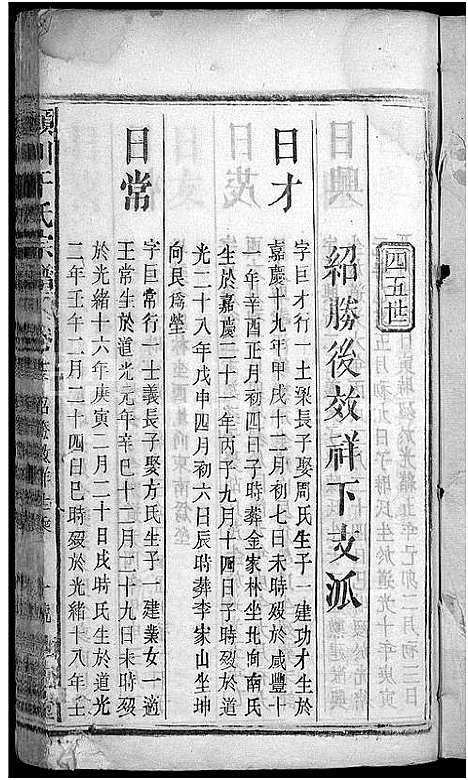 四五世
紹勝後效祥下支派
日才
字巨才行一士梁長子娶周氏生子一建功才生於
嘉慶十九年甲戌十二月初七日未時歿於咸豐十
一年辛酉正月初四日子時葬金家林坐北向南氏
生於嘉慶二十一年丙子九月十四日子時歿於道
光二十八年戊申四月初六日辰時葬李家山坐坤
向艮爲塋
日常
字巨常行一士義長子娶方氏生子一建業女一適
王常生於道光元年辛巳十二月二十九日未時歿
於光緒十六年庚寅二月二十日戌時氏生於道光
二年壬午二月二十四日巳時歿於光緒十八年壬